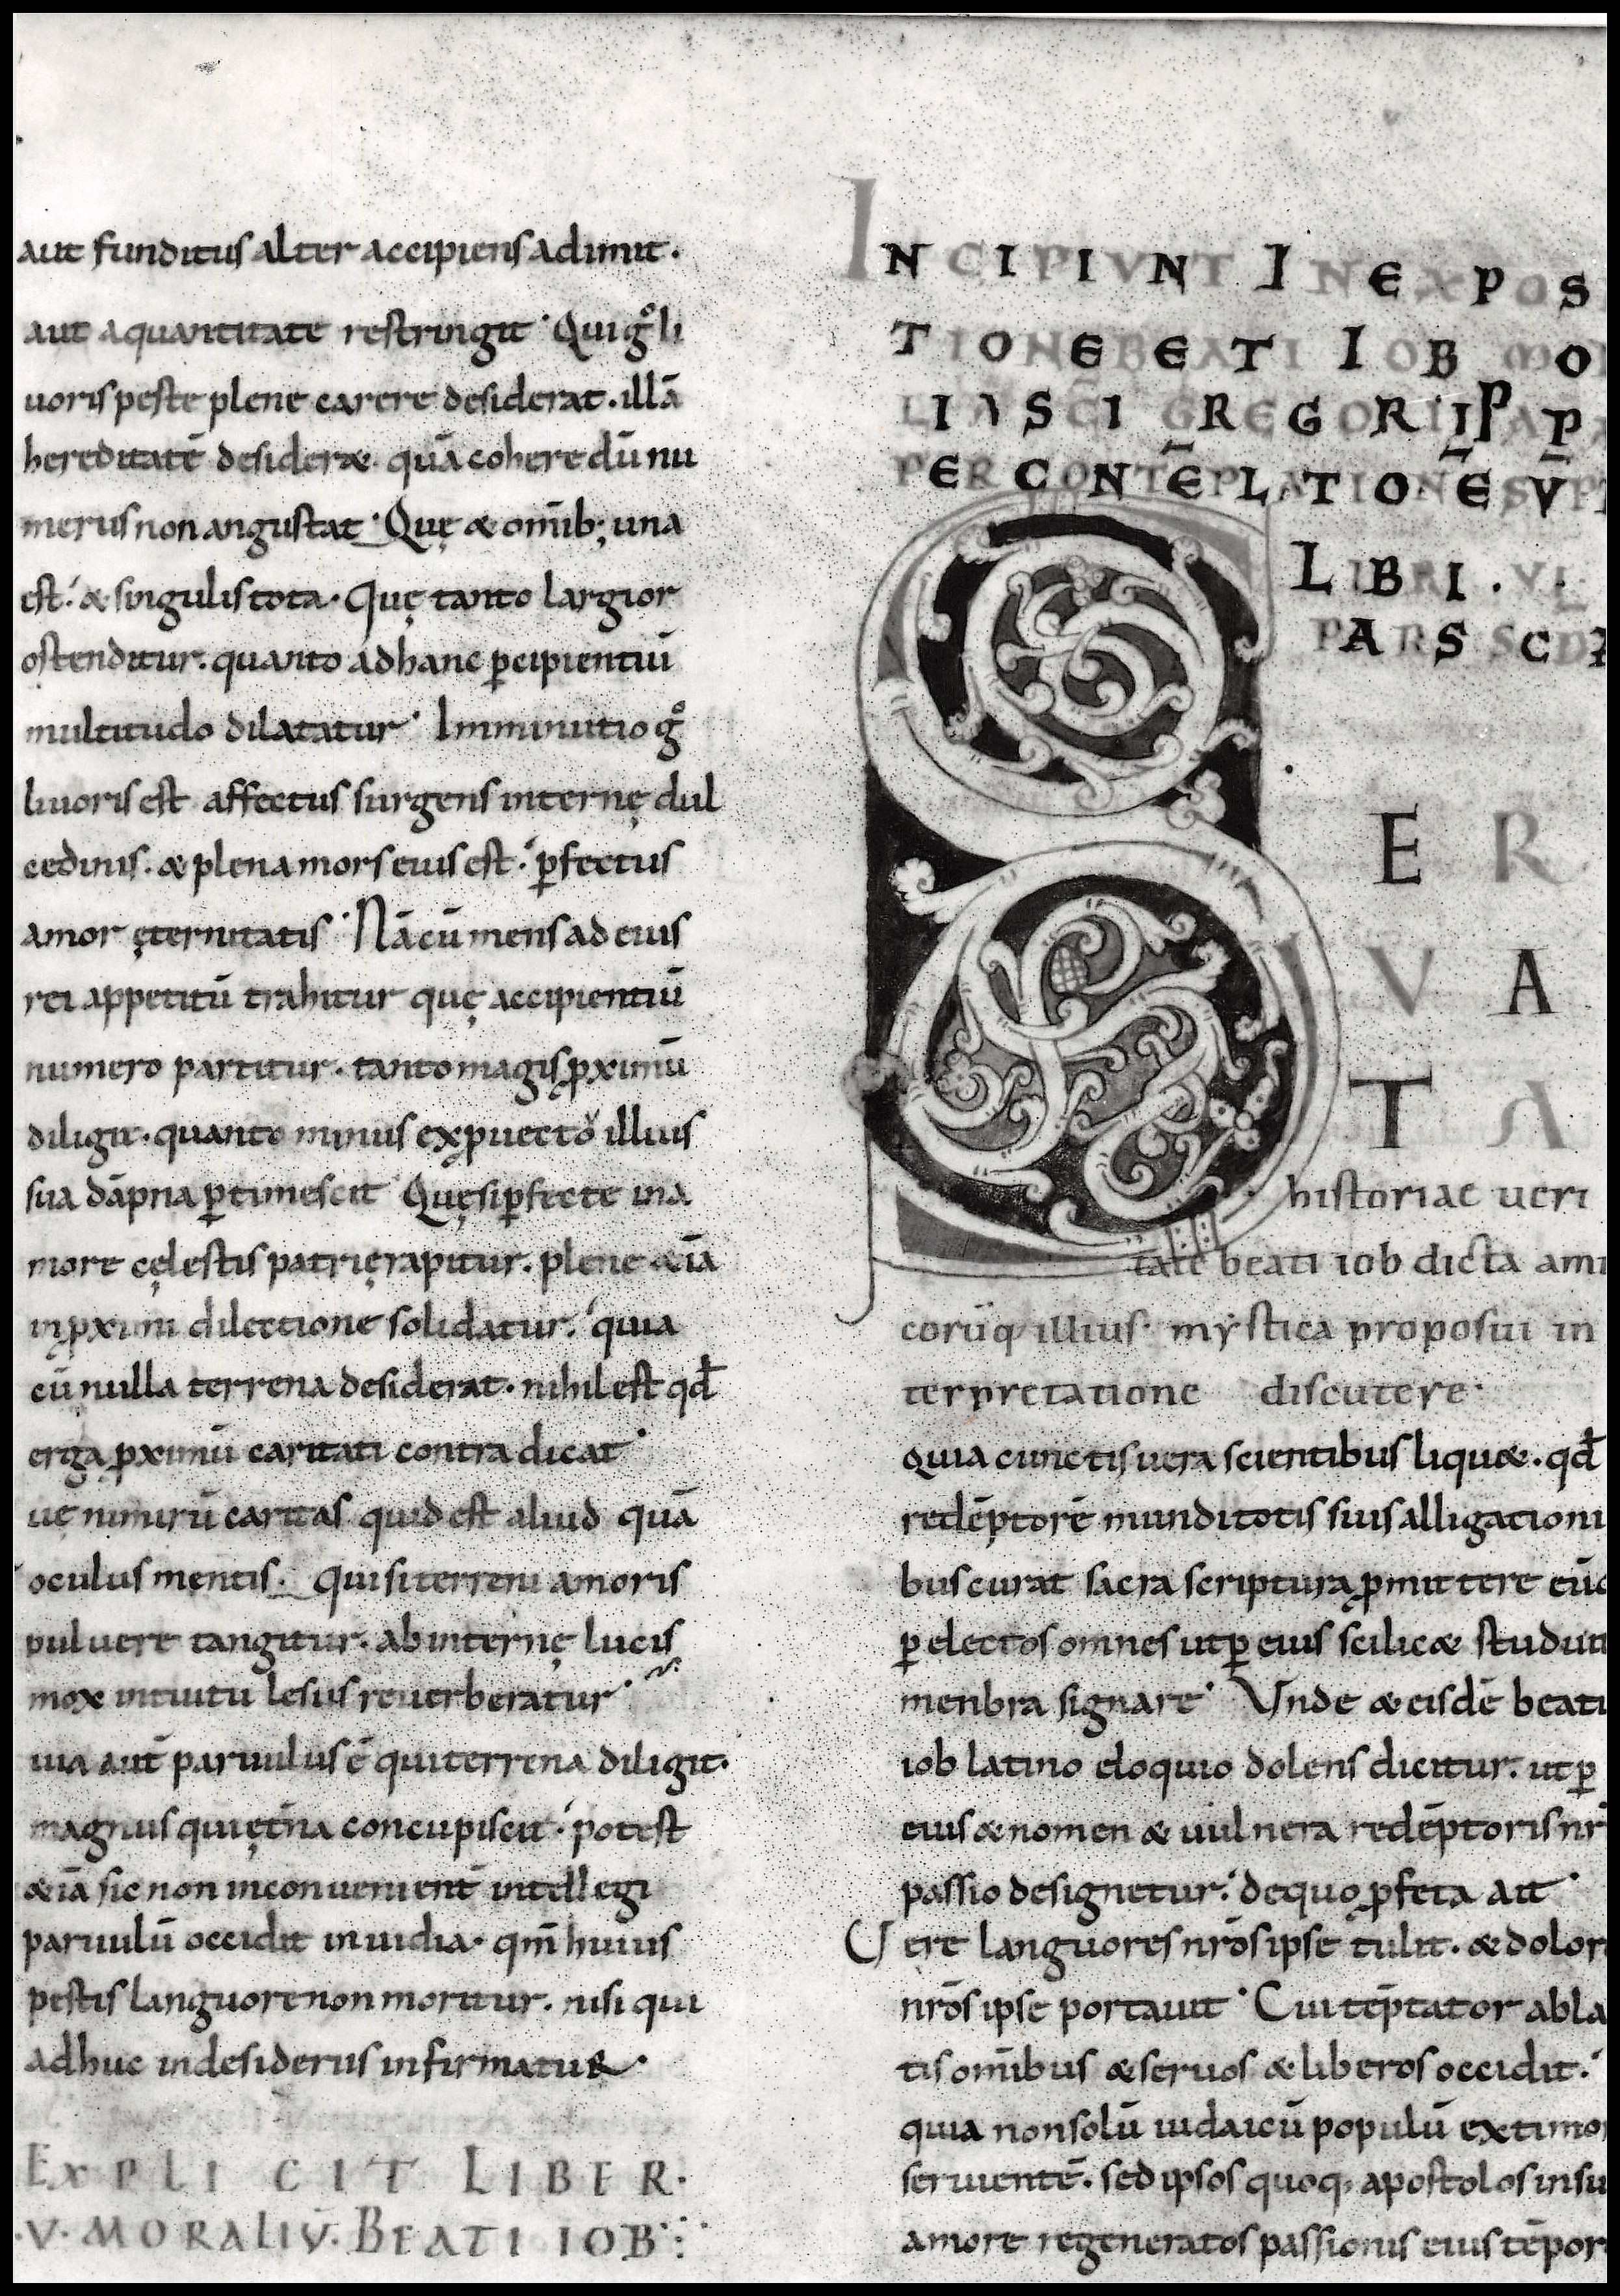 aut funditus alter accipiens adimit.
aut a quantitate restringit· Qui gͦ li
uoris peste plene carere desiderat. illā
hereditatē desideræ. quā coheredū nu
merus non angustat· Quę & om̄ib; una
est: & singulis tota. Quę tanto largior
ostenditur. quanto ad hanc p̲cipientiū
multitudo dilatatur· Imminutio gͦ
liuoris est affectus surgens internę dul
cedinis. & plena mors eius est: p̲fectus
amor ęternitatis· Nā cū mens ad eius
rei appetitū trahitur quę accipientiū
numero partitur. tanto magis ꝓximū
diligit. quanto minus ex ꝓuectu illius
sua dāpna p̲timescit· Quę si p̲fecte in a
more cęlestis patrię rapitur. plene &iā
in ꝓximi dilectione solidatur: quia
cū nulla terrena desiderat. nihil est qđ
erga ꝓximū caritati contradicat·
uę nimirū caritas quid est aliud quā
oculus mentis. Qui si terreni amoris
puluere tangitur. ab internę lucis
mox intuitu lesus reuerberatur·
uia aut̄ paruulus ē qui terrena diligit.
magnus qui ęt̄na concupiscit: potest
&iā sic non inconuenient̄ intellegi
paruulū occidit inuidia. qm̄ huius
pestis languore non moritur. nisi qui
adhuc in desideriis infirmatur.
EXPLICIT LIBER.
.V. MORALIŪ. BEATI IOB
INCIPIUNT IN EXPOS
TIONE BEATI IOB MO
LIA SCI GREGORII PAP
PER CONTĒPLATIONĒ SŪPT
LIBRI. VI.
PARS SCD
S ER
VA
TA
historiae ueri
tate beati iob dicta ami
corūq; illius. mystica proposui in
terpretatione discutere.
quia cunctis uera scientibus liquæ. qđ
redēptorē mundi totis suis alligationi
bus curat sacra scriptura ꝓmittere eūd
p̲ electos omnes ut p̲ eius scilicæ studuit
menbra signare· Unde & eisdē beati
iob latino eloquio dolens dicitur. ut p̲
eius & nomen & uulnera redēptoris nr̄
passio designetur: de quo ꝓfeta ait·
Uere languores nr̄os ipse tulit. & dolor
nr̄os ipse portauit· Cui tēptator abla
tis om̄ibus & seruos & liberos occidit:
quia non solū iudaicū populū ex timo
seruientē. sed ipsos quoq; apostolos in su
amore regeneratos passionis eius tēpor